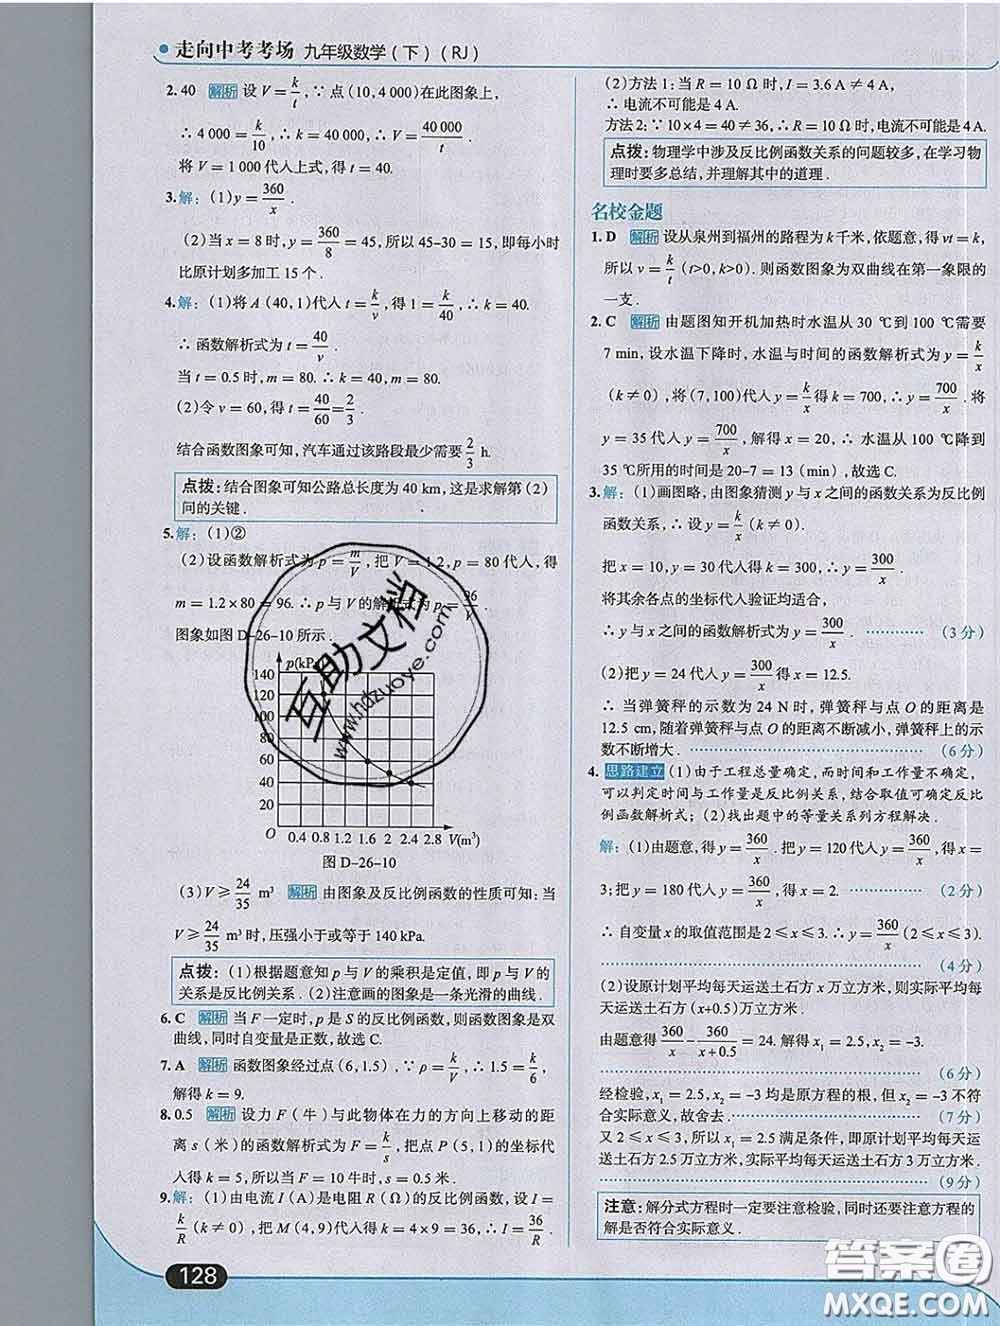 走向中考考场 九年级数学(下)(RJ)
2. 40 解析 设 V = k/t , ∵ 点(10,4 000)在此图象上,
∴ 4 000 = k/10 , ∴ k = 40 000, ∴ V = 40 000/t .
将 V = 1 000 代入上式,得 t = 40.
3. 解:(1)y = 360/x .
(2)当 x = 8 时, y = 360/8 = 45, 所以45-30 = 15, 即每小时
比原计划多加工 15 个 .
4. 解:(1)将 A (40,1)代入 t = k/v , 得 1 = k/40 , ∴ k = 40.
∴ 函数解析式为 t = 40/v .
当 t = 0.5 时, m = 80. ∴ k = 40, m = 80.
(2)令 v = 60, 得 t = 40/60 = 2/3 .
结合函数图象可知, 汽车通过该路段最少需要 2/3 h.
点拨:结合图象可知公路总长度为 40 km, 这是求解第(2)
问的关键 .
5. 解:(1)②
(2)设函数解析式为 p = m/V , 把 V = 1.2, p = 80 代入, 得
m = 1.2 × 80 = 96. ∴ p 与 V 的解析式为 p = 96/V
图象如图 D-26-10 所示 .
p(kPa)
140
120
100
80
60
40
20
O 0.4 0.8 1.2 1.6 2 2.4 2.8 V(m³)
图 D-26-10
(3)V ≥ 24/35 m³ 解析 由图象及反比例函数的性质可知: 当
V ≥ 24/35 m³ 时, 压强小于或等于 140 kPa.
点拨:(1)根据题意知 p 与 V 的乘积是定值, 即 p 与 V 的
关系是反比例关系 . (2)注意画的图象是一条光滑的曲线 .
6. C 解析 当 F 一定时, p 是 S 的反比例函数, 则函数图象是双
曲线, 同时自变量是正数, 故选 C.
7. A 解析 函数图象经过点(6,1.5), ∵ ρ = k/V , ∴ 1.5 = k/6 ,
解得 k = 9.
8. 0.5 解析 设力 F (牛)与此物体在力的方向上移动的距
离 s (米)的函数解析式为 F = k/s , 把点 P (5,1)的坐标代
入得 k = 5, 所以当 F = 10 牛时, s = 0.5 米 .
9. 解:(1)由电流 I (A)是电阻 R (Ω)的反比例函数, 设 I =
k/R (k ≠ 0), 把 M (4,9)代入得 k = 4 × 9 = 36, ∴ I = 36/R
128
(2)方法 1: 当 R = 10 Ω 时, I = 3.6 A ≠ 4 A,
∴ 电流不可能是 4 A.
方法 2: ∵ 10 × 4 = 40 ≠ 36, ∴ R = 10 Ω 时, 电流不可能是 4 A.
点拨:物理学中涉及反比例函数关系的问题较多, 在学习物
理时要多总结, 并理解其中的道理 .
名校金题
1. D 解析 设从泉州到福州的路程为 k 千米, 依题意, 得 vt = k,
所以 v = k/t (t>0, k>0). 则函数图象为双曲线在第一象限的
一支 .
2. C 解析 由题图知开机加热时水温从 30 ℃到 100 ℃需要
7 min, 设水温下降时, 水温与时间的函数解析式为 y = k/x
(k ≠ 0), 将(7,100)代入 y = k/x 得 k = 700, ∴ y = 700/x . 将
y = 35 代入 y = 700/x , 解得 x = 20, ∴ 水温从 100 ℃降到
35 ℃所用的时间是 20-7 = 13 (min), 故选 C.
3. 解:(1)画图略, 由图象猜测 y 与 x 之间的函数关系为反比例
函数关系, ∴ 设 y = k/x (k ≠ 0).
把 x = 10, y = 30 代入得 k = 300, ∴ y = 300/x
将其余各点的坐标代入验证均适合,
∴ y 与 x 之间的函数解析式为 y = 300/x . ………… (3 分)
(2)把 y = 24 代入 y = 300/x 得 x = 12.5.
∴ 当弹簧秤的示数为 24 N 时, 弹簧秤与点 O 的距离是
12.5 cm, 随着弹簧秤与点 O 的距离不断减小, 弹簧秤上的示
数不断增大 . ………………………… (6 分)
4. 思路建立 (1)由于工程总量确定, 而时间和工作量不确定,
可以判定时间与工作量是反比例关系, 结合取值可确定反比
例函数解析式; (2)找出题中的等量关系列方程解决 .
解:(1)由题意, 得 y = 360/x . 把 y = 120 代入 y = 360/x , 得 x =
3; 把 y = 180 代入 y = 360/x , 得 x = 2. ………… (2 分)
∴ 自变量 x 的取值范围是 2 ≤ x ≤ 3. ∴ y = 360/x (2 ≤ x ≤ 3).
………………………… (4 分)
(2)设原计划平均每天运送土石方 x 万立方米, 则实际平均
每天运送土石方(x+0.5)万立方米 .
由题意得 360/x - 360/x+0.5 = 24. 解得 x₁ = 2.5, x₂ = -3.
………………………… (6 分)
经检验, x₁ = 2.5, x₂ = -3 均是原方程的根, 但 x₂ = -3 不符
合实际意义, 故舍去 . ………………………… (7 分)
又 2 ≤ x ≤ 3, 所以 x₁ = 2.5 满足条件, 即原计划平均每天运
送土石方 2.5 万立方米, 实际平均每天运送土石方 3 万立方米 .
………………………… (9 分)
注意:解分式方程时一定要注意检验, 同时还要注意方程的
解是否符合实际意义 .
互助文档
www.hdzuoye.com
答案圈
MXQE.COM